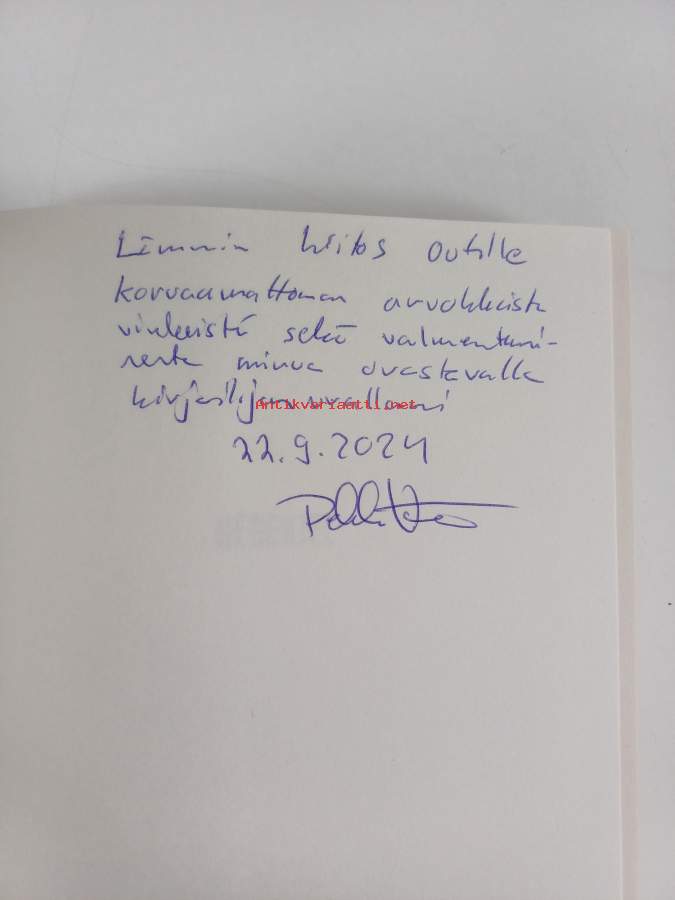 Lämmin kiitos Outille
korvaamattoman arvokkaista
vinkeistä sekä valmentami-
sesta minua orastavalla
kirjailijanurallani
Antikvariaatti.net
22.9.2024